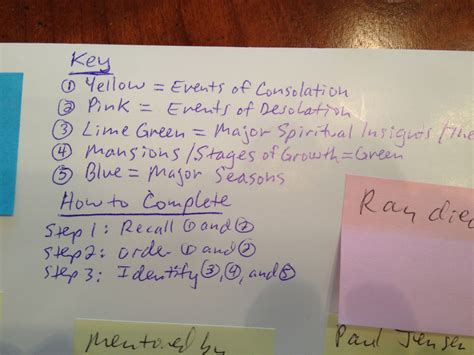 Key
① Yellow = Events of Consolation
② Pink = Events of Desolation
③ Lime Green = Major Spiritual Insights/The
④ Mansions/Stages of Growth = Green
⑤ Blue = Major Seasons
How to Complete
Step 1: Recall ① and ②
Step 2: order ① and ②
Step 3: Identify ③, ④, and ⑤
Ray died
mentored by
Paul Jensen